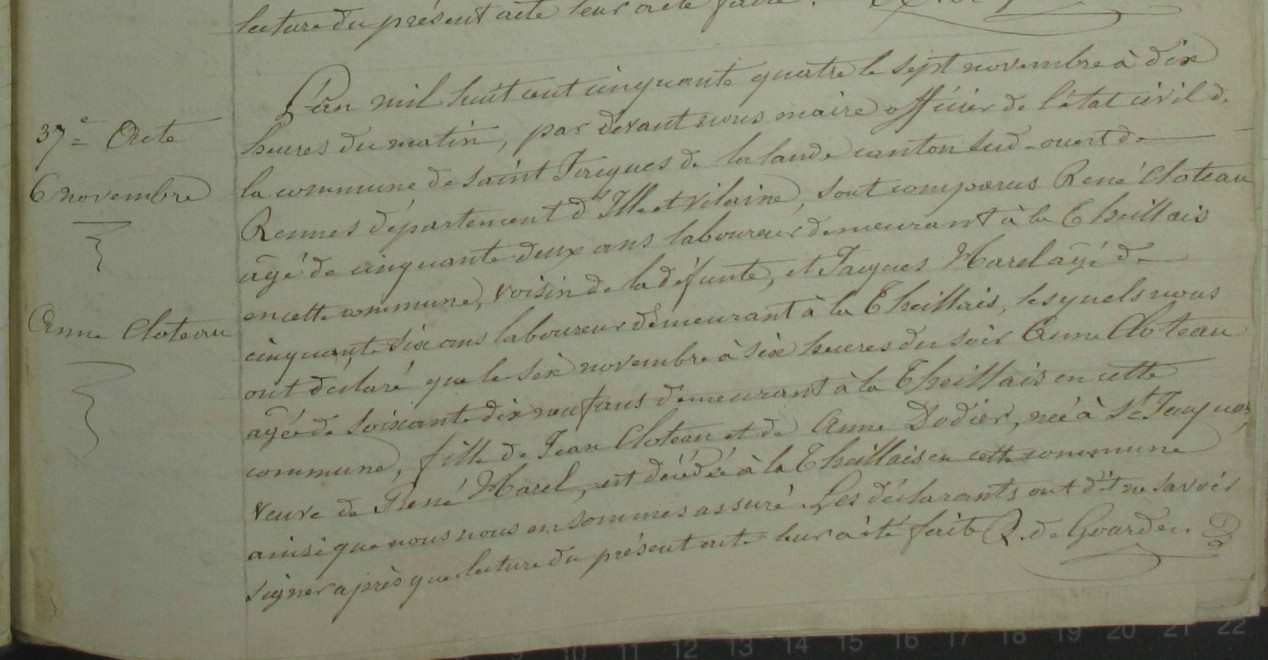 lecture du présent acte leur a été faite.
L'an mil huit cent cinquante quatre le sept novembre à dix
37e Acte heures du matin, par devant nous maire officier de l'état civil de
6 novembre la commune de Saint Jacques de la lande canton sud-ouest de
Rennes département d'Ille et Vilaine, sont comparus René Cloteau
âgé de cinquante deux ans laboureur demeurant à la Theillais
en cette commune, voisin de la défunte, et Jacques Harel âgé de
Anne Cloteau cinquante six ans laboureur demeurant à la Theillais, lesquels nous
ont déclaré que le six novembre à six heures du soir Anne Cloteau
âgée de soixante dix neuf ans demeurant à la Theillais en cette
commune, fille de Jean Cloteau et de Anne Dodier, née à St Jacques,
veuve de René Harel, est décédée à la Theillais en cette commune
ainsi que nous nous en sommes assuré. Les déclarants ont dit ne savoir
signer après que lecture du présent acte leur a été faite
12 13 14 15 16 17 18 19 20 21 22